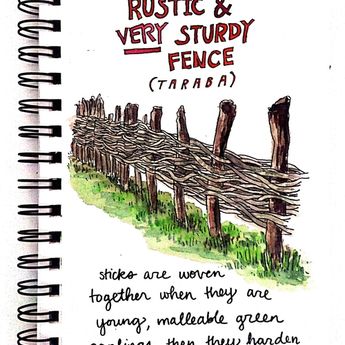 RUSTIC &
VERY STURDY
FENCE
(TARABA)
sticks are woven
together when they are
young, malleable green
saplings, then they harden